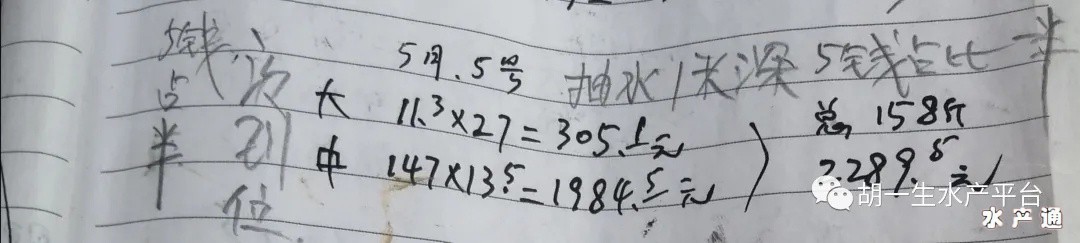 5钱占半
次到位
5月.5号 抽水1米深 5钱占比一半
大 11.3×27=305.1元 总 158斤
中 147×13.5=1984.5元 2289.5元
胡一生水产平台
水产通